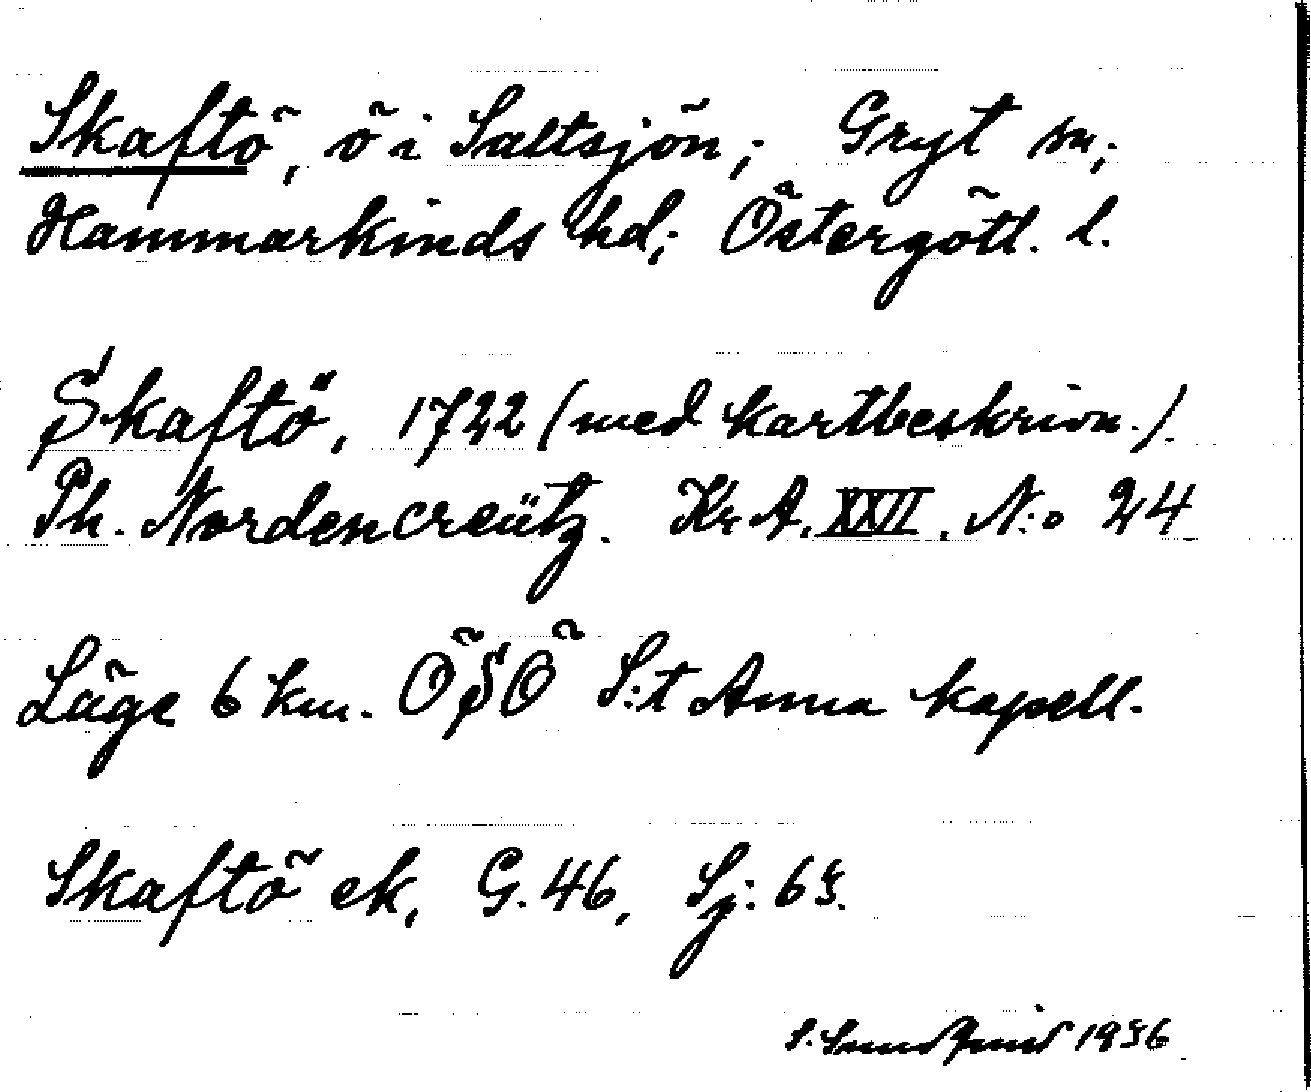 Skaftö, ö i Saltsjön; Gryt sn;
Hammarkinds hd; Östergötl. l.
Skaftö, 1722 (med kartbeskrivn.).
Ph. Nordencreütz. Kr. A. XXII. N:o 24
Läge 6 km. ÖSÖ S:t Anna kapell.
Skaftö ek, G. 46, Sj: 65.
S. 1936